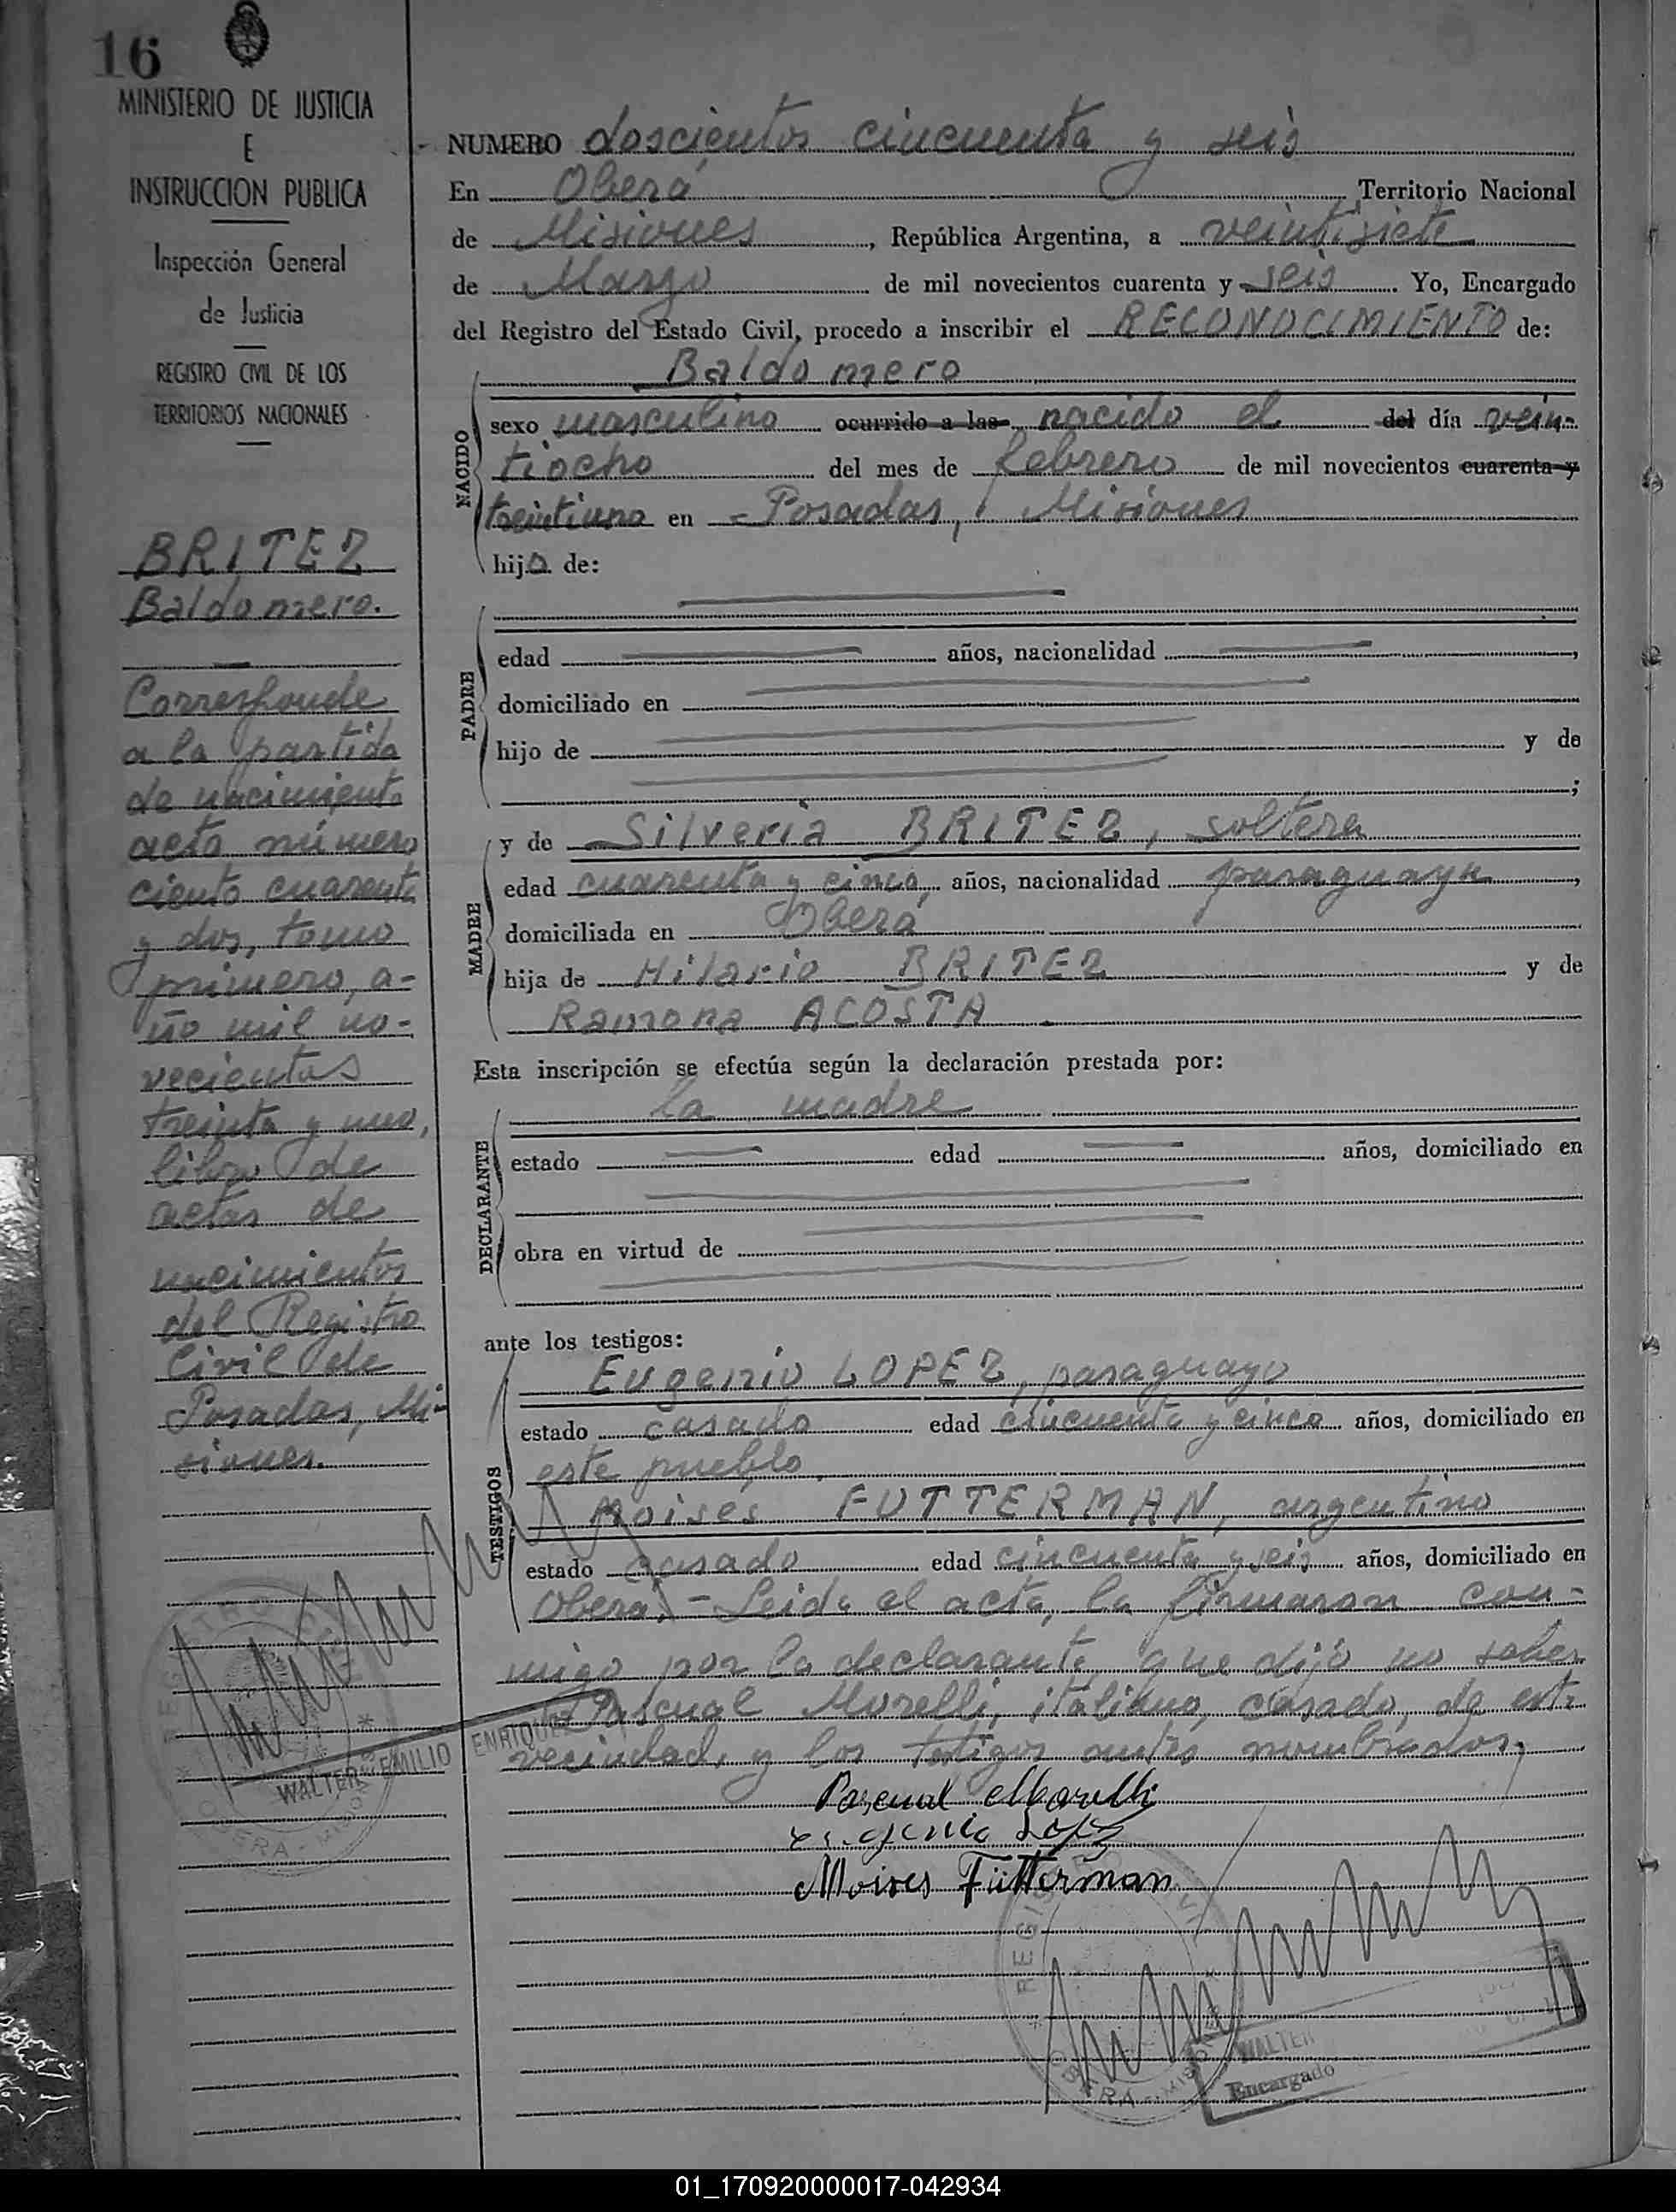 16
MINISTERIO DE JUSTICIA
E
INSTRUCCION PUBLICA
Inspección General
de Justicia
REGISTRO CIVIL DE LOS
TERRITORIOS NACIONALES
BRITEZ
Baldomero.
Corresponde
a la partida
de nacimiento
acta número
ciento cuarenta
y dos, tomo
primero, a-
ño mil no-
vecientos
treinta y uno,
libro de
actas de
nacimientos
del Registro
Civil de
Posadas, Mi-
siones.
NUMERO doscientos cincuenta y seis
En Oberá Territorio Nacional
de Misiones, República Argentina, a veintisiete
de Marzo de mil novecientos cuarenta y seis. Yo, Encargado
del Registro del Estado Civil, procedo a inscribir el RECONOCIMIENTO de:
Baldomero
NACIDO
sexo masculino ocurrido a las nacido el del día vein-
tiocho del mes de febrero de mil novecientos cuarenta y
treintiuno en - Posadas, Misiones
hijo de:
PADRE
edad años, nacionalidad ,
domiciliado en
hijo de y de
;
MADRE
y de Silveria BRITEZ, soltera
edad cuarenta y cinco años, nacionalidad paraguaya,
domiciliada en Oberá
hija de Hilario BRITEZ y de
Ramona ACOSTA.
Esta inscripción se efectúa según la declaración prestada por:
DECLARANTE
la madre
estado edad años, domiciliado en
obra en virtud de
ante los testigos:
TESTIGOS
Eugenio LOPEZ, paraguayo
estado casado edad cincuenta y cinco años, domiciliado en
este pueblo.
Moisés FUTTERMAN, argentino
estado casado edad cincuenta y seis años, domiciliado en
Oberá. - Leida el acta, la firmaron con-
migo por la declarante que dijo no saber
Pascual Morelli, italiano, casado, de esta
vecindad, y los testigos antes nombrados.
WALTER EMILIO ENRIQUE
Pascual Morelli
Eugenio Lopez
Moises Fütterman
WALTER
Encargado
01_170920000017-042934